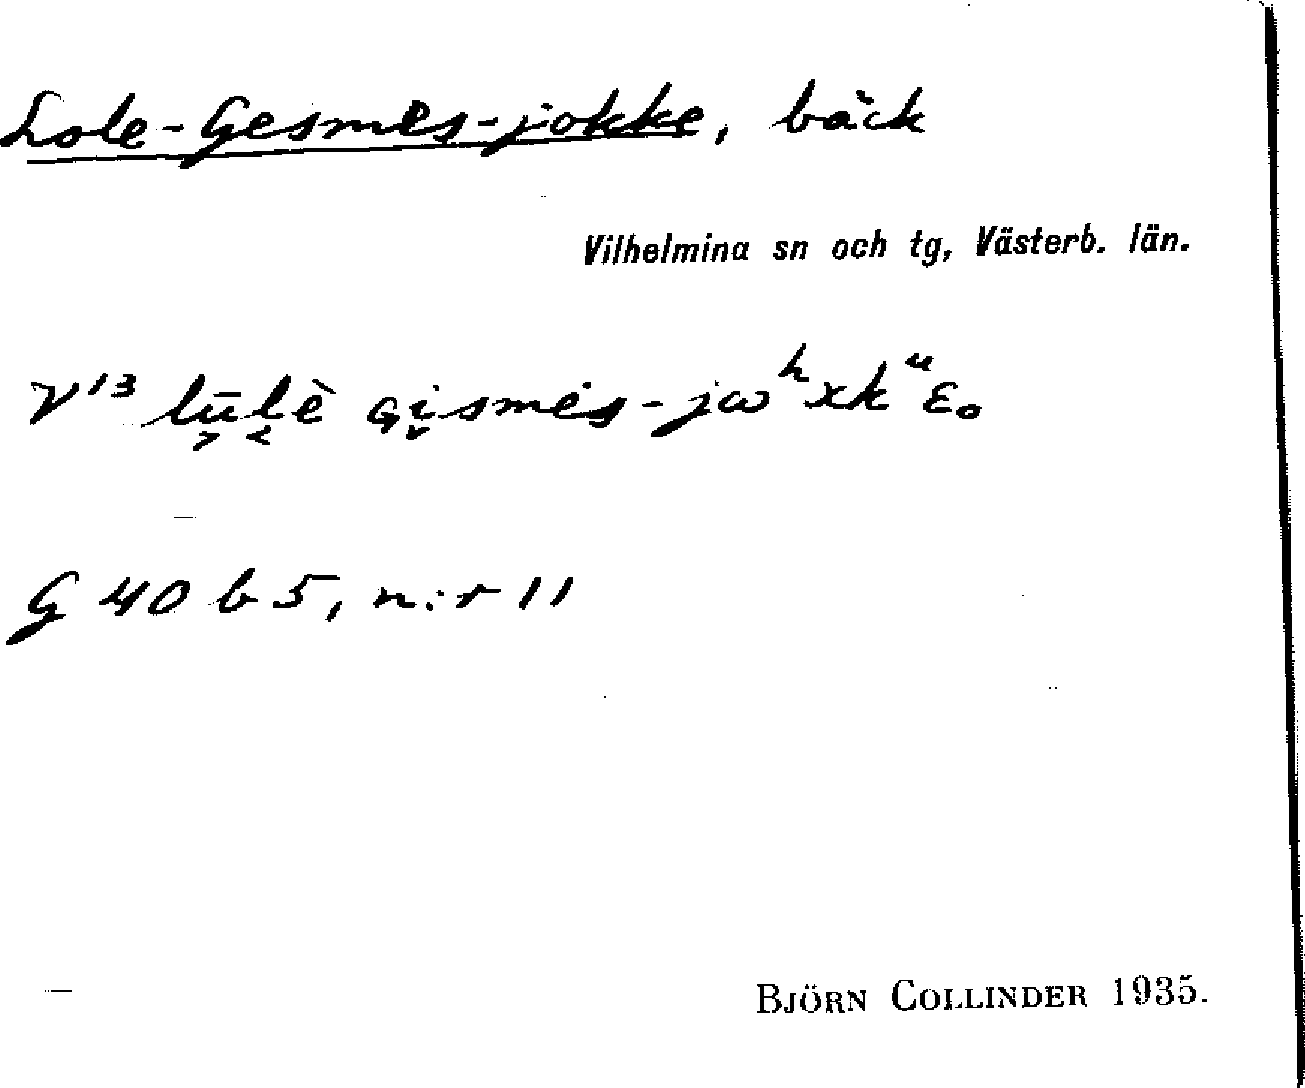 Lole-Gesmes-jokke, bäck
Vilhelmina sn och tg, Västerb. län.
V¹³ lūlè ɢismės-jωʰxkᵘɛₒ
G 40 b 5, n:r 11
BJÖRN COLLINDER 1935.